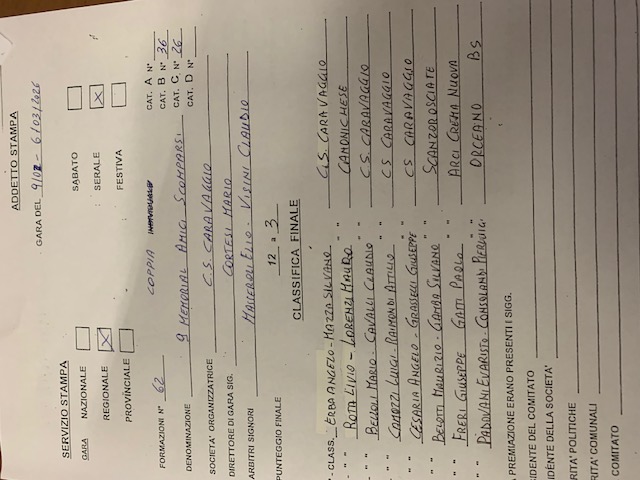 ADDETTO STAMPA
SERVIZIO STAMPA
GARA DEL 6/03/2026
GARA NAZIONALE SABATO
REGIONALE X SERALE X
PROVINCIALE FESTIVA
FORMAZIONI N° 62 COPPIA CAT. A N°
CAT. B N° 36
CAT. C N° 26
CAT. D N°
DENOMINAZIONE 9 MEMORIAL AMICI SCOMPARSI
SOCIETA' ORGANIZZATRICE C.S. CARAVAGGIO
DIRETTORE DI GARA SIG. CORTESI MARIO
ARBITRI SIGNORI ELIO - VISINI CLAUDIO
PUNTEGGIO FINALE 12 a 3
CLASSIFICA FINALE
- CLASS. ERBA ANGELO - MAZZA SILVANO C.S. CARAVAGGIO
" " ROTA LIVIO - LORENZI MAURO " " CANONICHESE
" " BELLOLI MARIO - CAVALLI CLAUDIO " " C.S. CARAVAGGIO
" " CAMOZZI LUIGI - RAIMONDI ATTILIO " " CS CARAVAGGIO
" " CESARIA ANGELO - GRASSELLI GIUSEPPE " " CS CARAVAGGIO
" " BELOTTI MAURIZIO - GAMBA SILVANO " " SCANZOROSCIATE
" " FRERI GIUSEPPE GATTI PAOLO " " ARCI CREMA NUOVA
" " PADOVANI EVARISTO - CONSOLANDI PIERLUIGI " " ORCEANO BS
PREMIAZIONE ERANO PRESENTI I SIGG.
SIDENTE DEL COMITATO
SIDENTE DELLA SOCIETA'
RITA' POLITICHE
RITA' COMUNALI
COMITATO